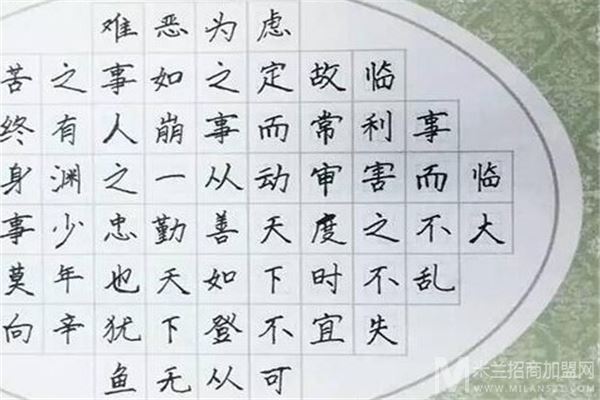 临大
事而不乱
临利害之不失
故常审度时宜
虑定而动天下不可
为之事从善如登从
恶如崩一勤天下无
难事人之忠也犹鱼
之有渊少年辛
苦终身事莫向
米兰招商加盟网
WWW.MILANSZ.COM